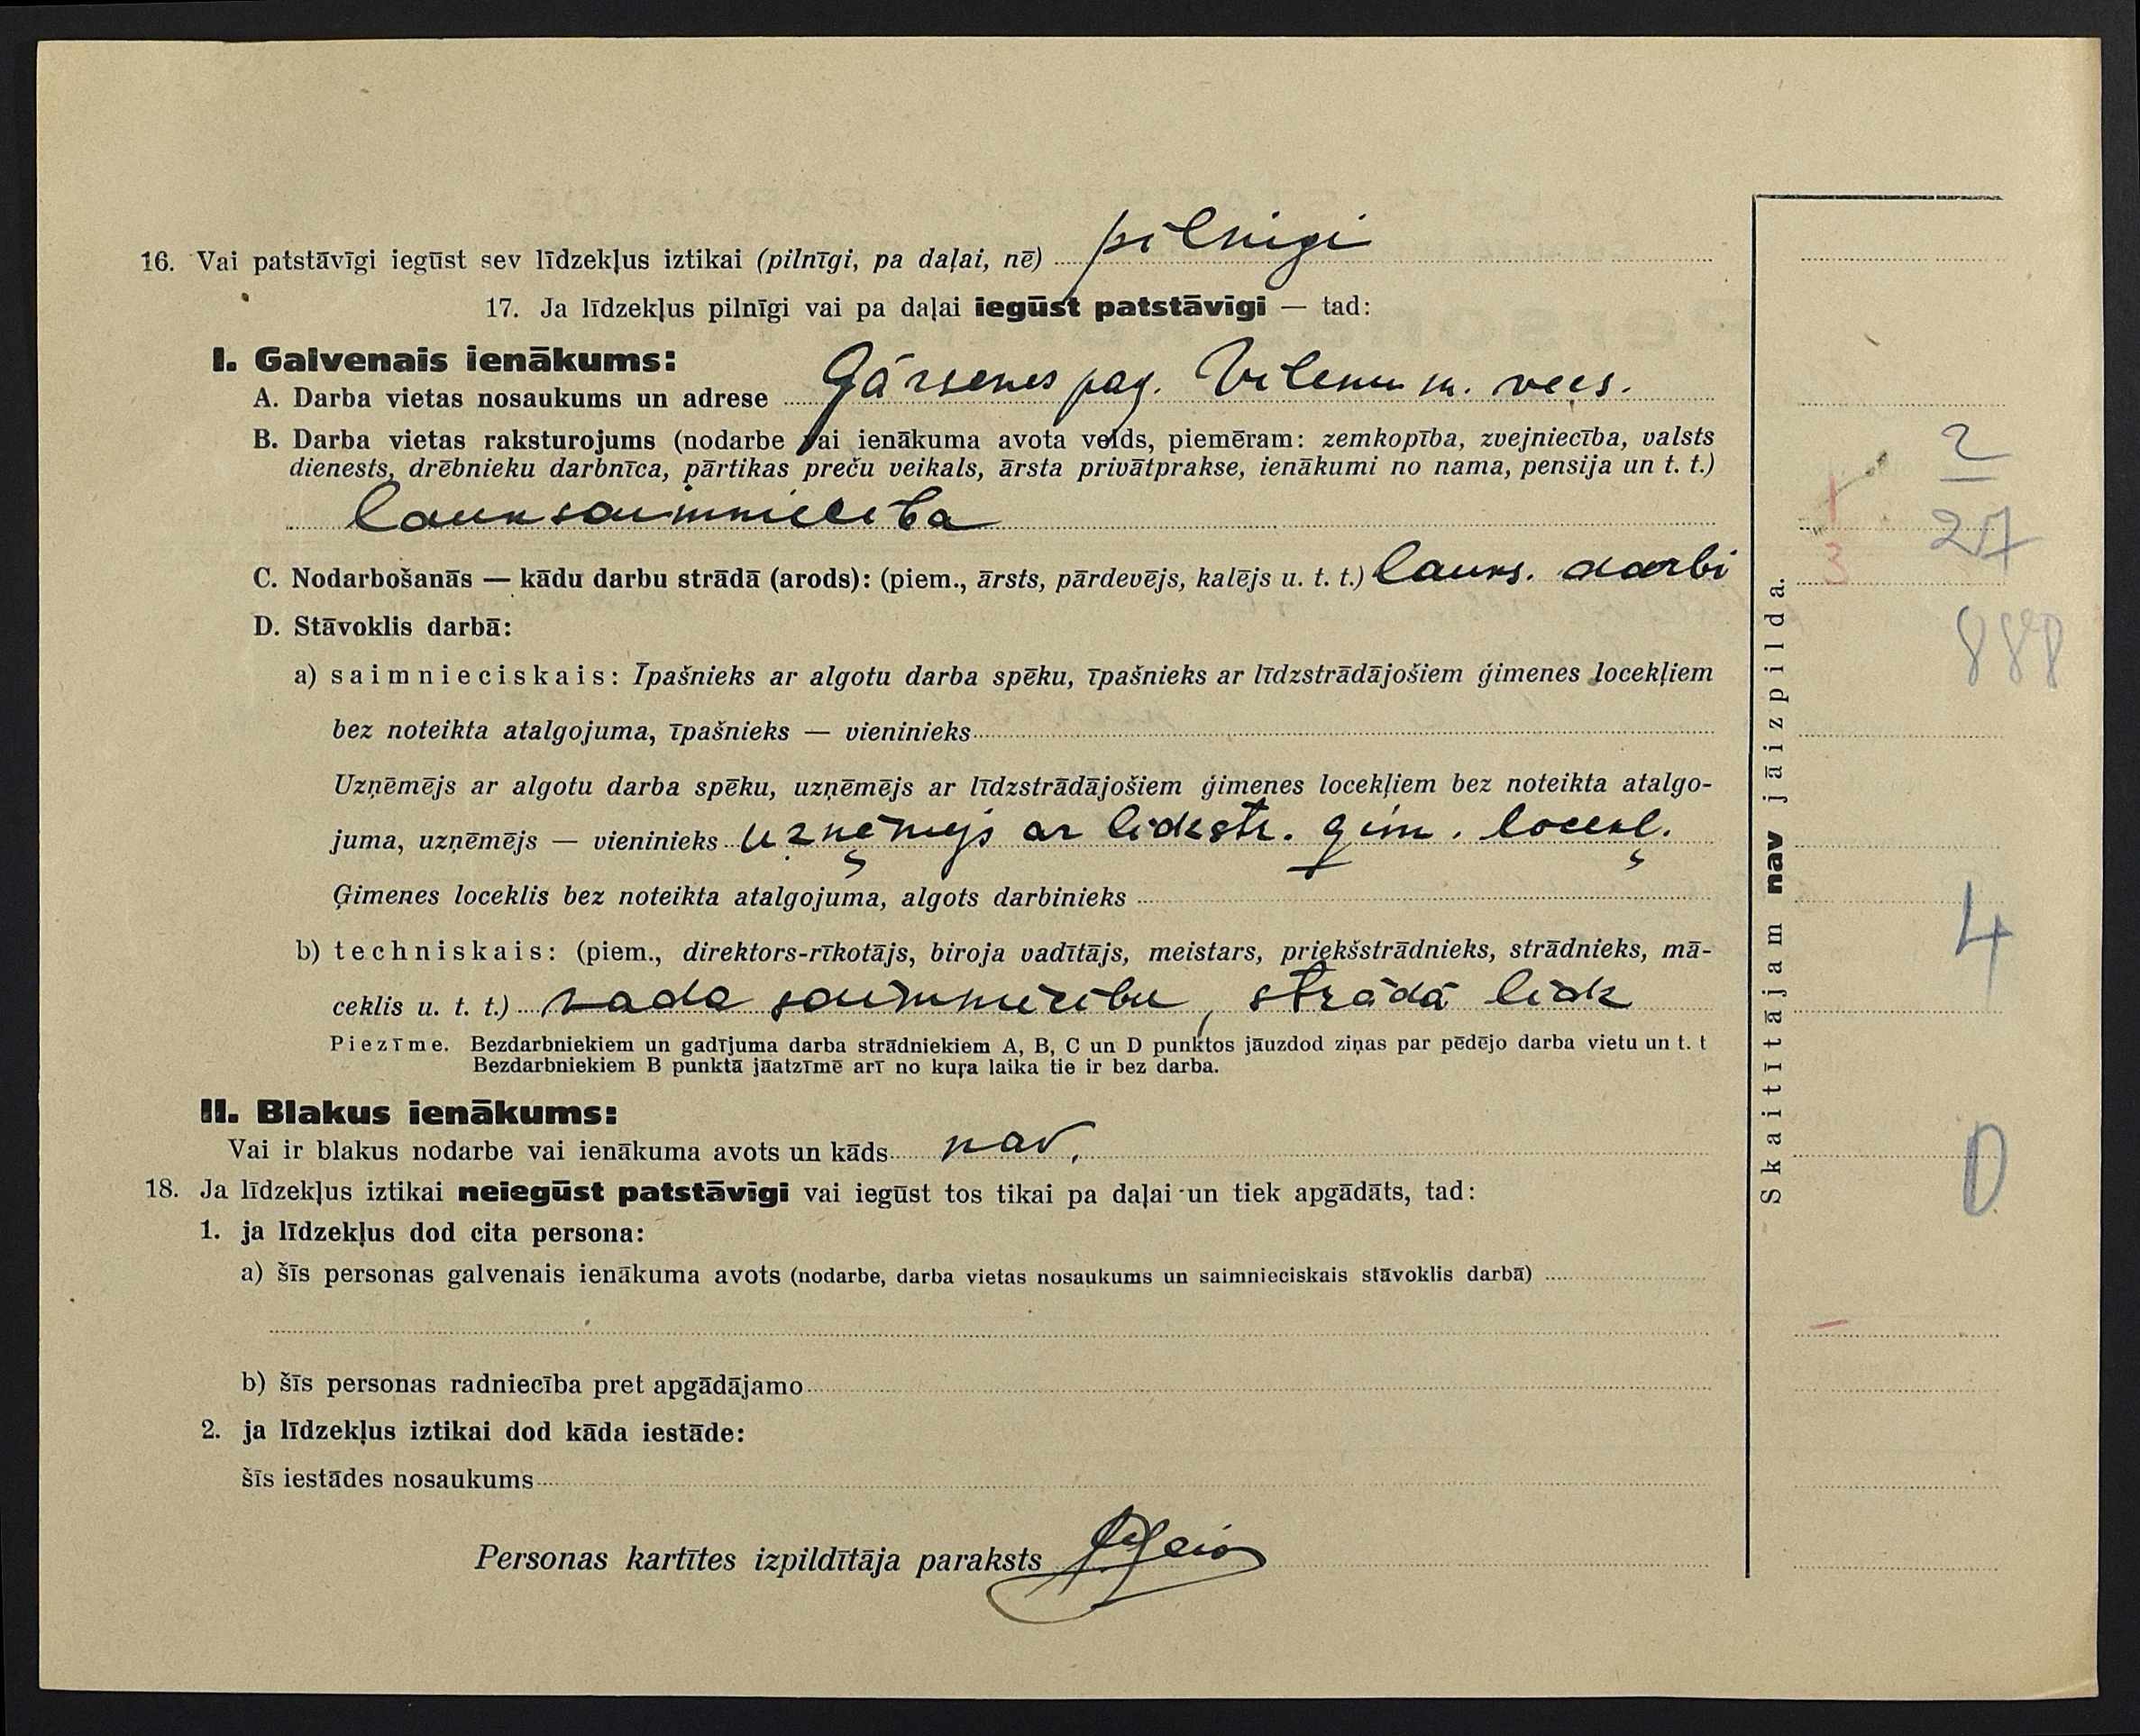 16. Vai patstāvīgi iegūst sev līdzekļus iztikai (pilnīgi, pa daļai, nē) pilnigi
17. Ja līdzekļus pilnīgi vai pa daļai iegūst patstāvīgi — tad:
I. Galvenais ienākums:
A. Darba vietas nosaukums un adrese Gārsenes pag. m. vecs.
B. Darba vietas raksturojums (nodarbe vai ienākuma avota veids, piemēram: zemkopība, zvejniecība, valsts
dienests, drēbnieku darbnīca, pārtikas preču veikals, ārsta privātprakse, ienākumi no nama, pensija un t. t.)
lauksaimniecība
C. Nodarbošanās — kādu darbu strādā (arods): (piem., ārsts, pārdevējs, kalējs u. t. t.) lauks. darbi
D. Stāvoklis darbā:
a) saimnieciskais: Īpašnieks ar algotu darba spēku, īpašnieks ar līdzstrādājošiem ģimenes locekļiem
bez noteikta atalgojuma, īpašnieks — vieninieks
Uzņēmējs ar algotu darba spēku, uzņēmējs ar līdzstrādājošiem ģimenes locekļiem bez noteikta atalgo-
juma, uzņēmējs — vieninieks uzņēmējs ar lidzstr. ģim. locekļ.
Ģimenes loceklis bez noteikta atalgojuma, algots darbinieks
b) techniskais: (piem., direktors-rīkotājs, biroja vadītājs, meistars, priekšstrādnieks, strādnieks, mā-
ceklis u. t. t.) vada saimniecibu, strādā lidz
Piezīme. Bezdarbniekiem un gadījuma darba strādniekiem A, B, C un D punktos jāuzdod ziņas par pēdējo darba vietu un t. t
Bezdarbniekiem B punktā jāatzīmē arī no kuŗa laika tie ir bez darba.
II. Blakus ienākums:
Vai ir blakus nodarbe vai ienākuma avots un kāds nav.
18. Ja līdzekļus iztikai neiegūst patstāvīgi vai iegūst tos tikai pa daļai un tiek apgādāts, tad:
1. ja līdzekļus dod cita persona:
a) šīs personas galvenais ienākuma avots (nodarbe, darba vietas nosaukums un saimnieciskais stāvoklis darbā)
b) šīs personas radniecība pret apgādājamo
2. ja līdzekļus iztikai dod kāda iestāde:
šīs iestādes nosaukums
Personas kartītes izpildītāja paraksts
Skaitītājam nav jāizpilda.
2
27
3
888
4
0